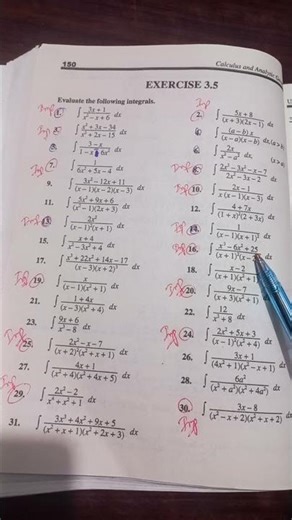 150 Calculus and Analytic
EXERCISE 3.5
Evaluate the following integrals.
Imp 1. ∫ (3x + 1)/(x² − x + 6) dx
Imp 2. ∫ (5x + 8)/((x + 3)(2x − 1)) dx
3. ∫ (x² + 3x − 34)/(x² + 2x − 15) dx
4. ∫ ((a − b)x)/((x − a)(x − b)) dx
5. ∫ (3 − x)/(1 − x − 6x²) dx
6. ∫ 2x/(x² − a²) dx
Imp 7. ∫ 1/(6x² + 5x − 4) dx
8. ∫ (2x³ − 3x² − x − 7)/(2x² − 3x − 2) dx
9. ∫ (3x² − 12x + 11)/((x − 1)(x − 2)(x − 3)) dx
Imp 10. ∫ (2x − 1)/(x(x − 1)(x − 3)) dx
11. ∫ (5x² + 9x + 6)/((x² − 1)(2x + 3)) dx
12. ∫ (4 + 7x)/((1 + x)²(2 + 3x)) dx
Imp 13. ∫ 2x²/((x − 1)²(x + 1)) dx
Imp 14. ∫ 1/((x − 1)(x + 1)²) dx
15. ∫ (x + 4)/(x³ − 3x² + 4) dx
Imp 16. ∫ (x³ − 6x² + 25)/((x + 1)²(x −
17. ∫ (x³ + 22x² + 14x − 17)/((x − 3)(x + 2)³) dx
18. ∫ (x − 2)/((x + 1)(x² + 1)) dx
Imp 19. ∫ x/((x − 1)(x² + 1)) dx
Imp 20. ∫ (9x − 7)/((x + 3)(x² + 1)) dx
21. ∫ (1 + 4x)/((x − 3)(x² + 4)) dx
22. ∫ 12/(x³ + 8) dx
23. ∫ (9x + 6)/(x³ − 8) dx
Imp 24. ∫ (2x² + 5x + 3)/((x − 1)²(x² + 4)) dx
Imp 25. ∫ (2x² − x − 7)/((x + 2)²(x² + x + 1)) dx
26. ∫ (3x + 1)/((4x² + 1)(x² − x + 1)) dx
27. ∫ (4x + 1)/((x² + 4)(x² + 4x + 5)) dx
28. ∫ 6a²/((x² + a²)(x² + 4a²)) dx
Imp 29. ∫ (2x² − 2)/(x⁴ + x² + 1) dx
Imp 30. ∫ (3x − 8)/((x² − x + 2)(x² + x + 2)) dx
31. ∫ (3x³ + 4x² + 9x + 5)/((x² + x + 1)(x² + 2x + 3)) dx